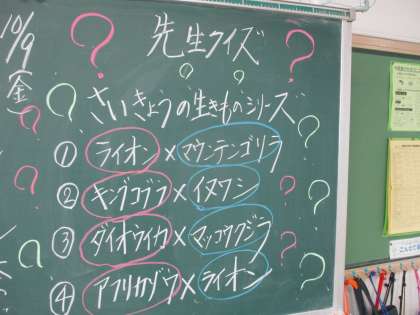 10/9
(金)
先生クイズ
さいきょうの生きものシリーズ
① ライオン×マウンテンゴリラ
② キングコブラ×イヌワシ
③ ダイオウイカ×マッコウクジラ
④ アフリカゾウ×ライオン